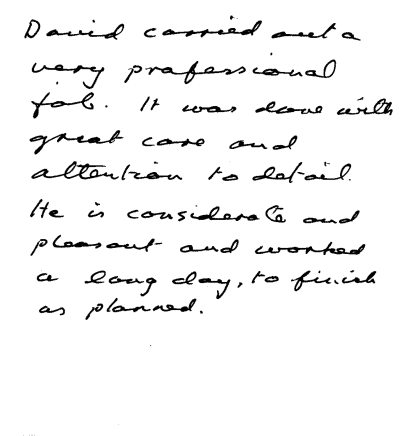 David carried out a
very professional
job. It was done with
great care and
attention to detail.
He is considerate and
pleasant and worked
a long day, to finish
as planned.